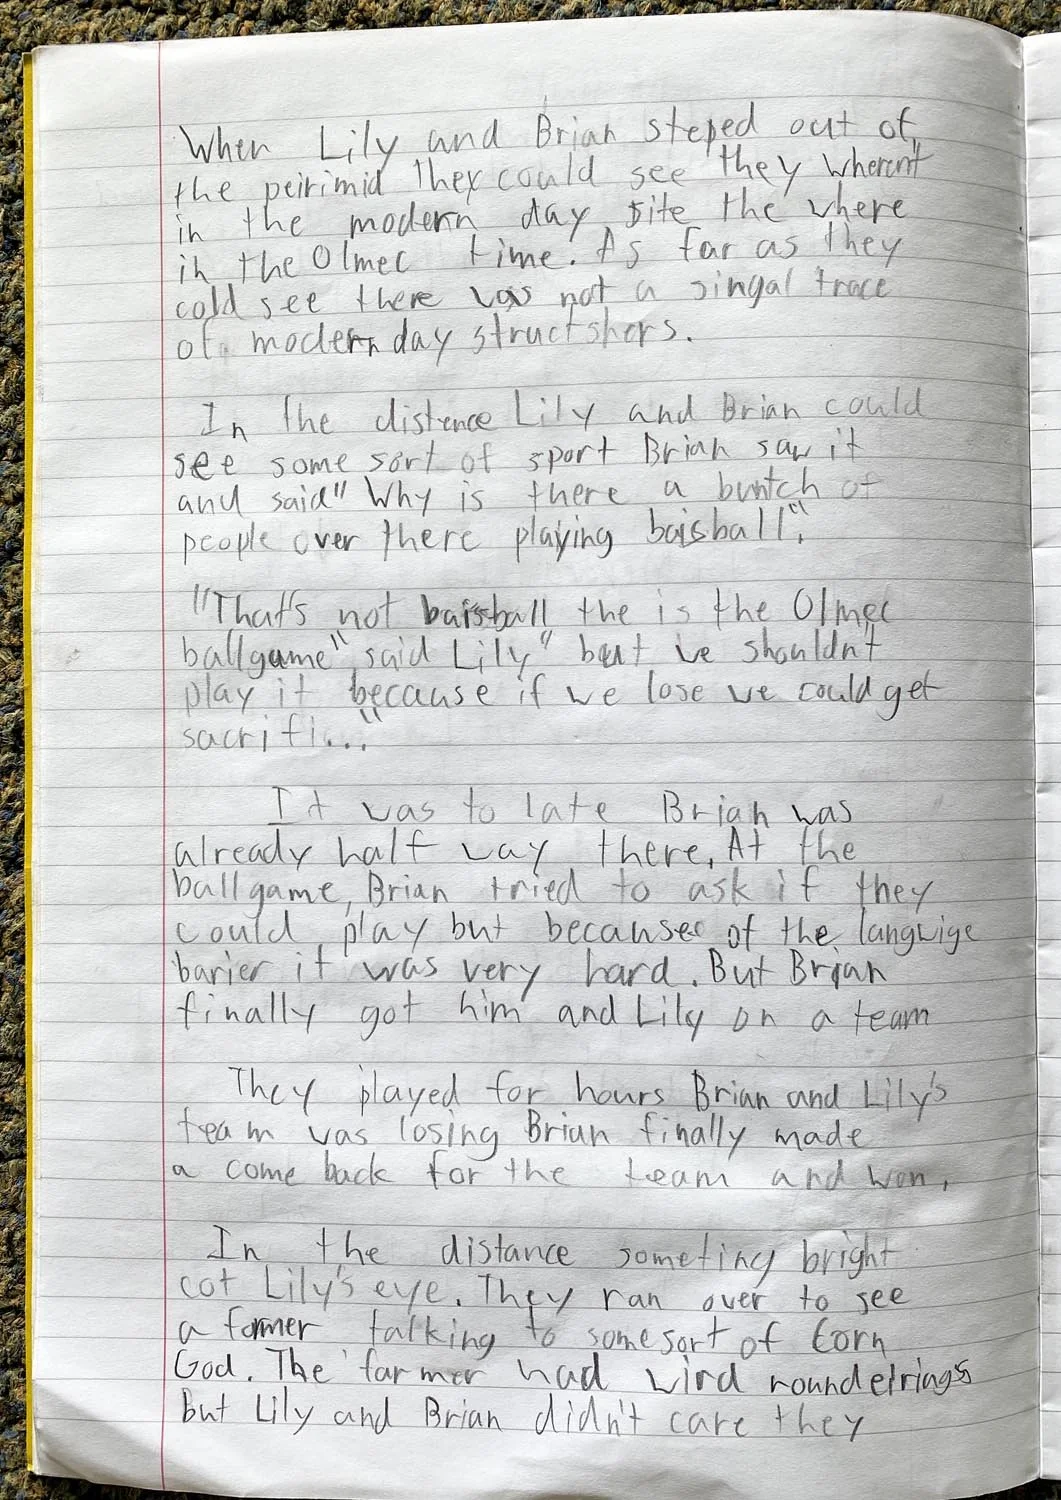 When Lily and Brian steped out of
the peirimid They could see they wherent
in the modern day site the where
in the Olmec time. As far as they
cold see there was not a singal trace
of modern day structshors.
In the distence Lily and Brian could
see some sort of sport Brian saw it
and said" Why is there a buntch of
people over there playing baisball".
"That's not baisball the is the Olmec
ballgame" said Lily" but we shouldn't
play it because if we lose we could get
sacrifi..."
It was to late Brian was
already half way there. At the
ballgame, Brian tried to ask if they
could play but becausee of the langwige
barier it was very hard. But Brian
finally got him and Lily on a team
They played for hours Brian and Lily's
team was losing Brian finally made
a come back for the team and won.
In the distance someting bright
cot Lily's eye. They ran over to see
a former talking to some sort of Corn
God. The farmer had wird round elrings
But Lily and Brian didn't care they